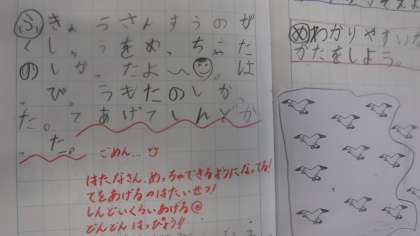 ふ きょうさんすうのが
くしゅうをめっちゃた
のしかったよ〜。は
っぴょうもたのしかっ
た。てあげてしんどか
った。
ごめん…
さん、めっちゃできるようになってる!
てをあげるのはたいせつ!
しんどいくらいあげる
どんどんはっぴょう!!
めわかりやすい
かたをしよう。